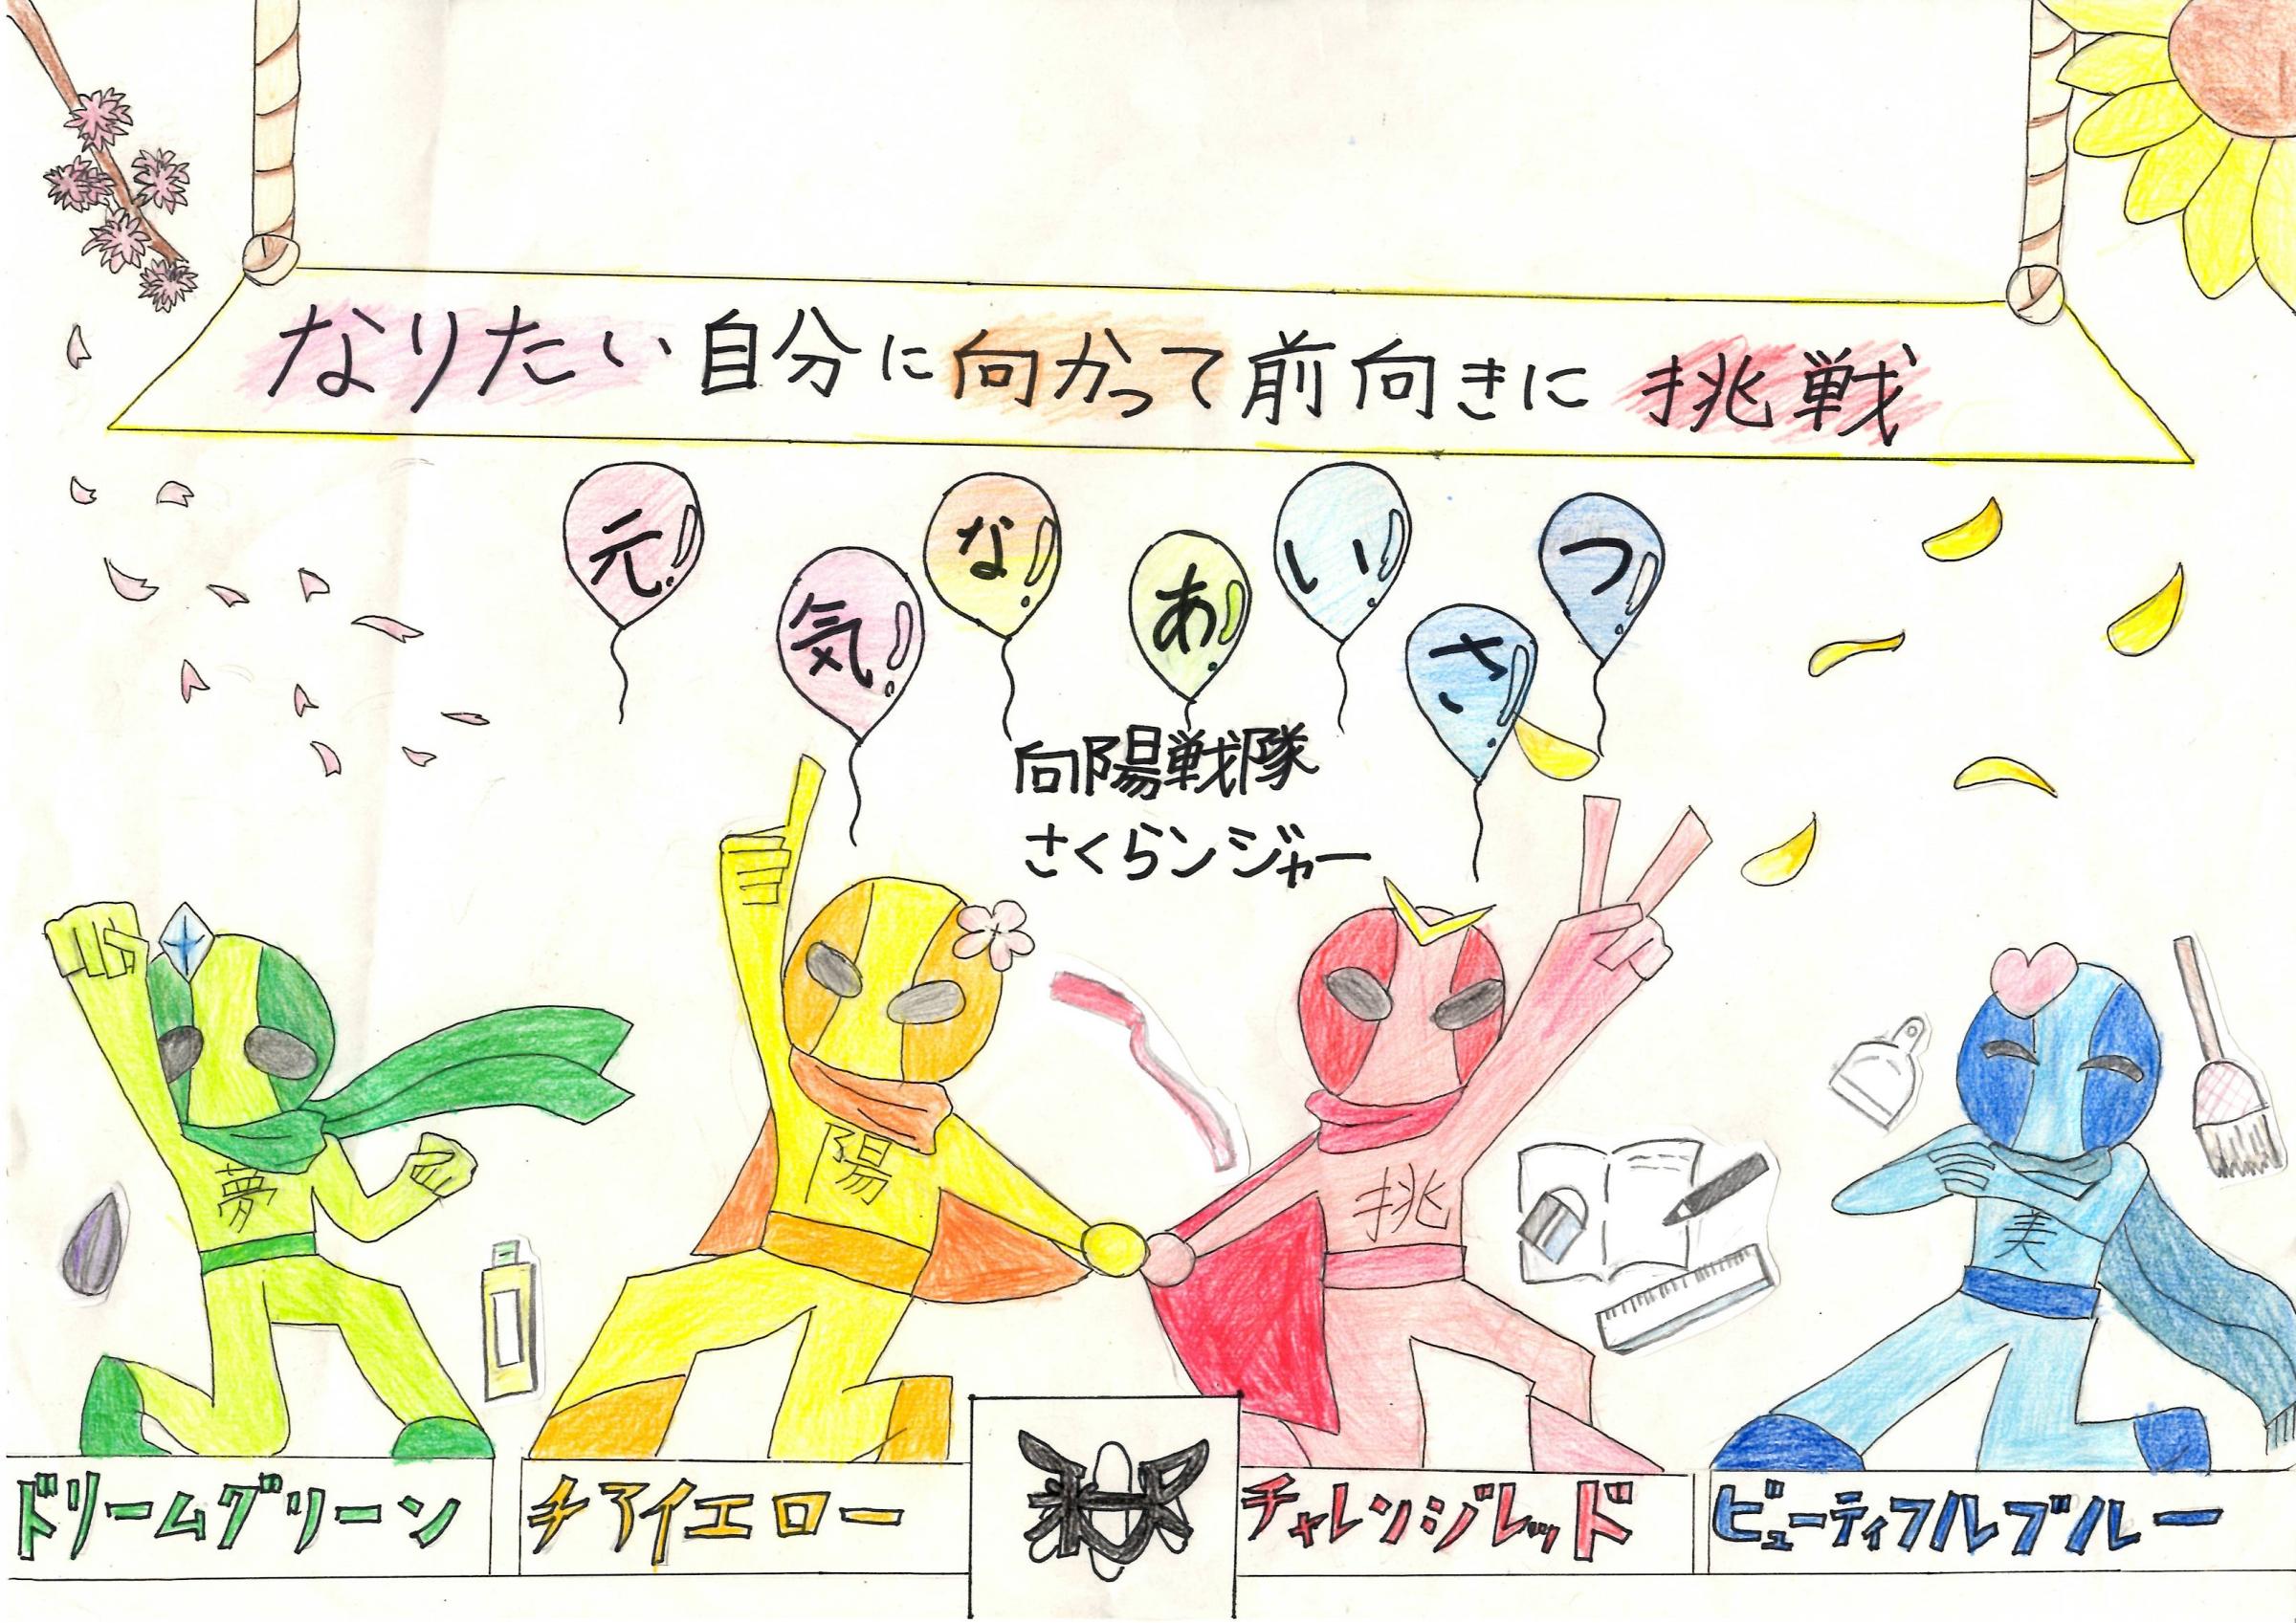 なりたい自分に向かって前向きに挑戦
元気なあいさつ
向陽戦隊
さくらンジャー
夢
陽
挑
美
ドリームグリーン
チアイエロー
チャレンジレッド
ビューティフルブルー